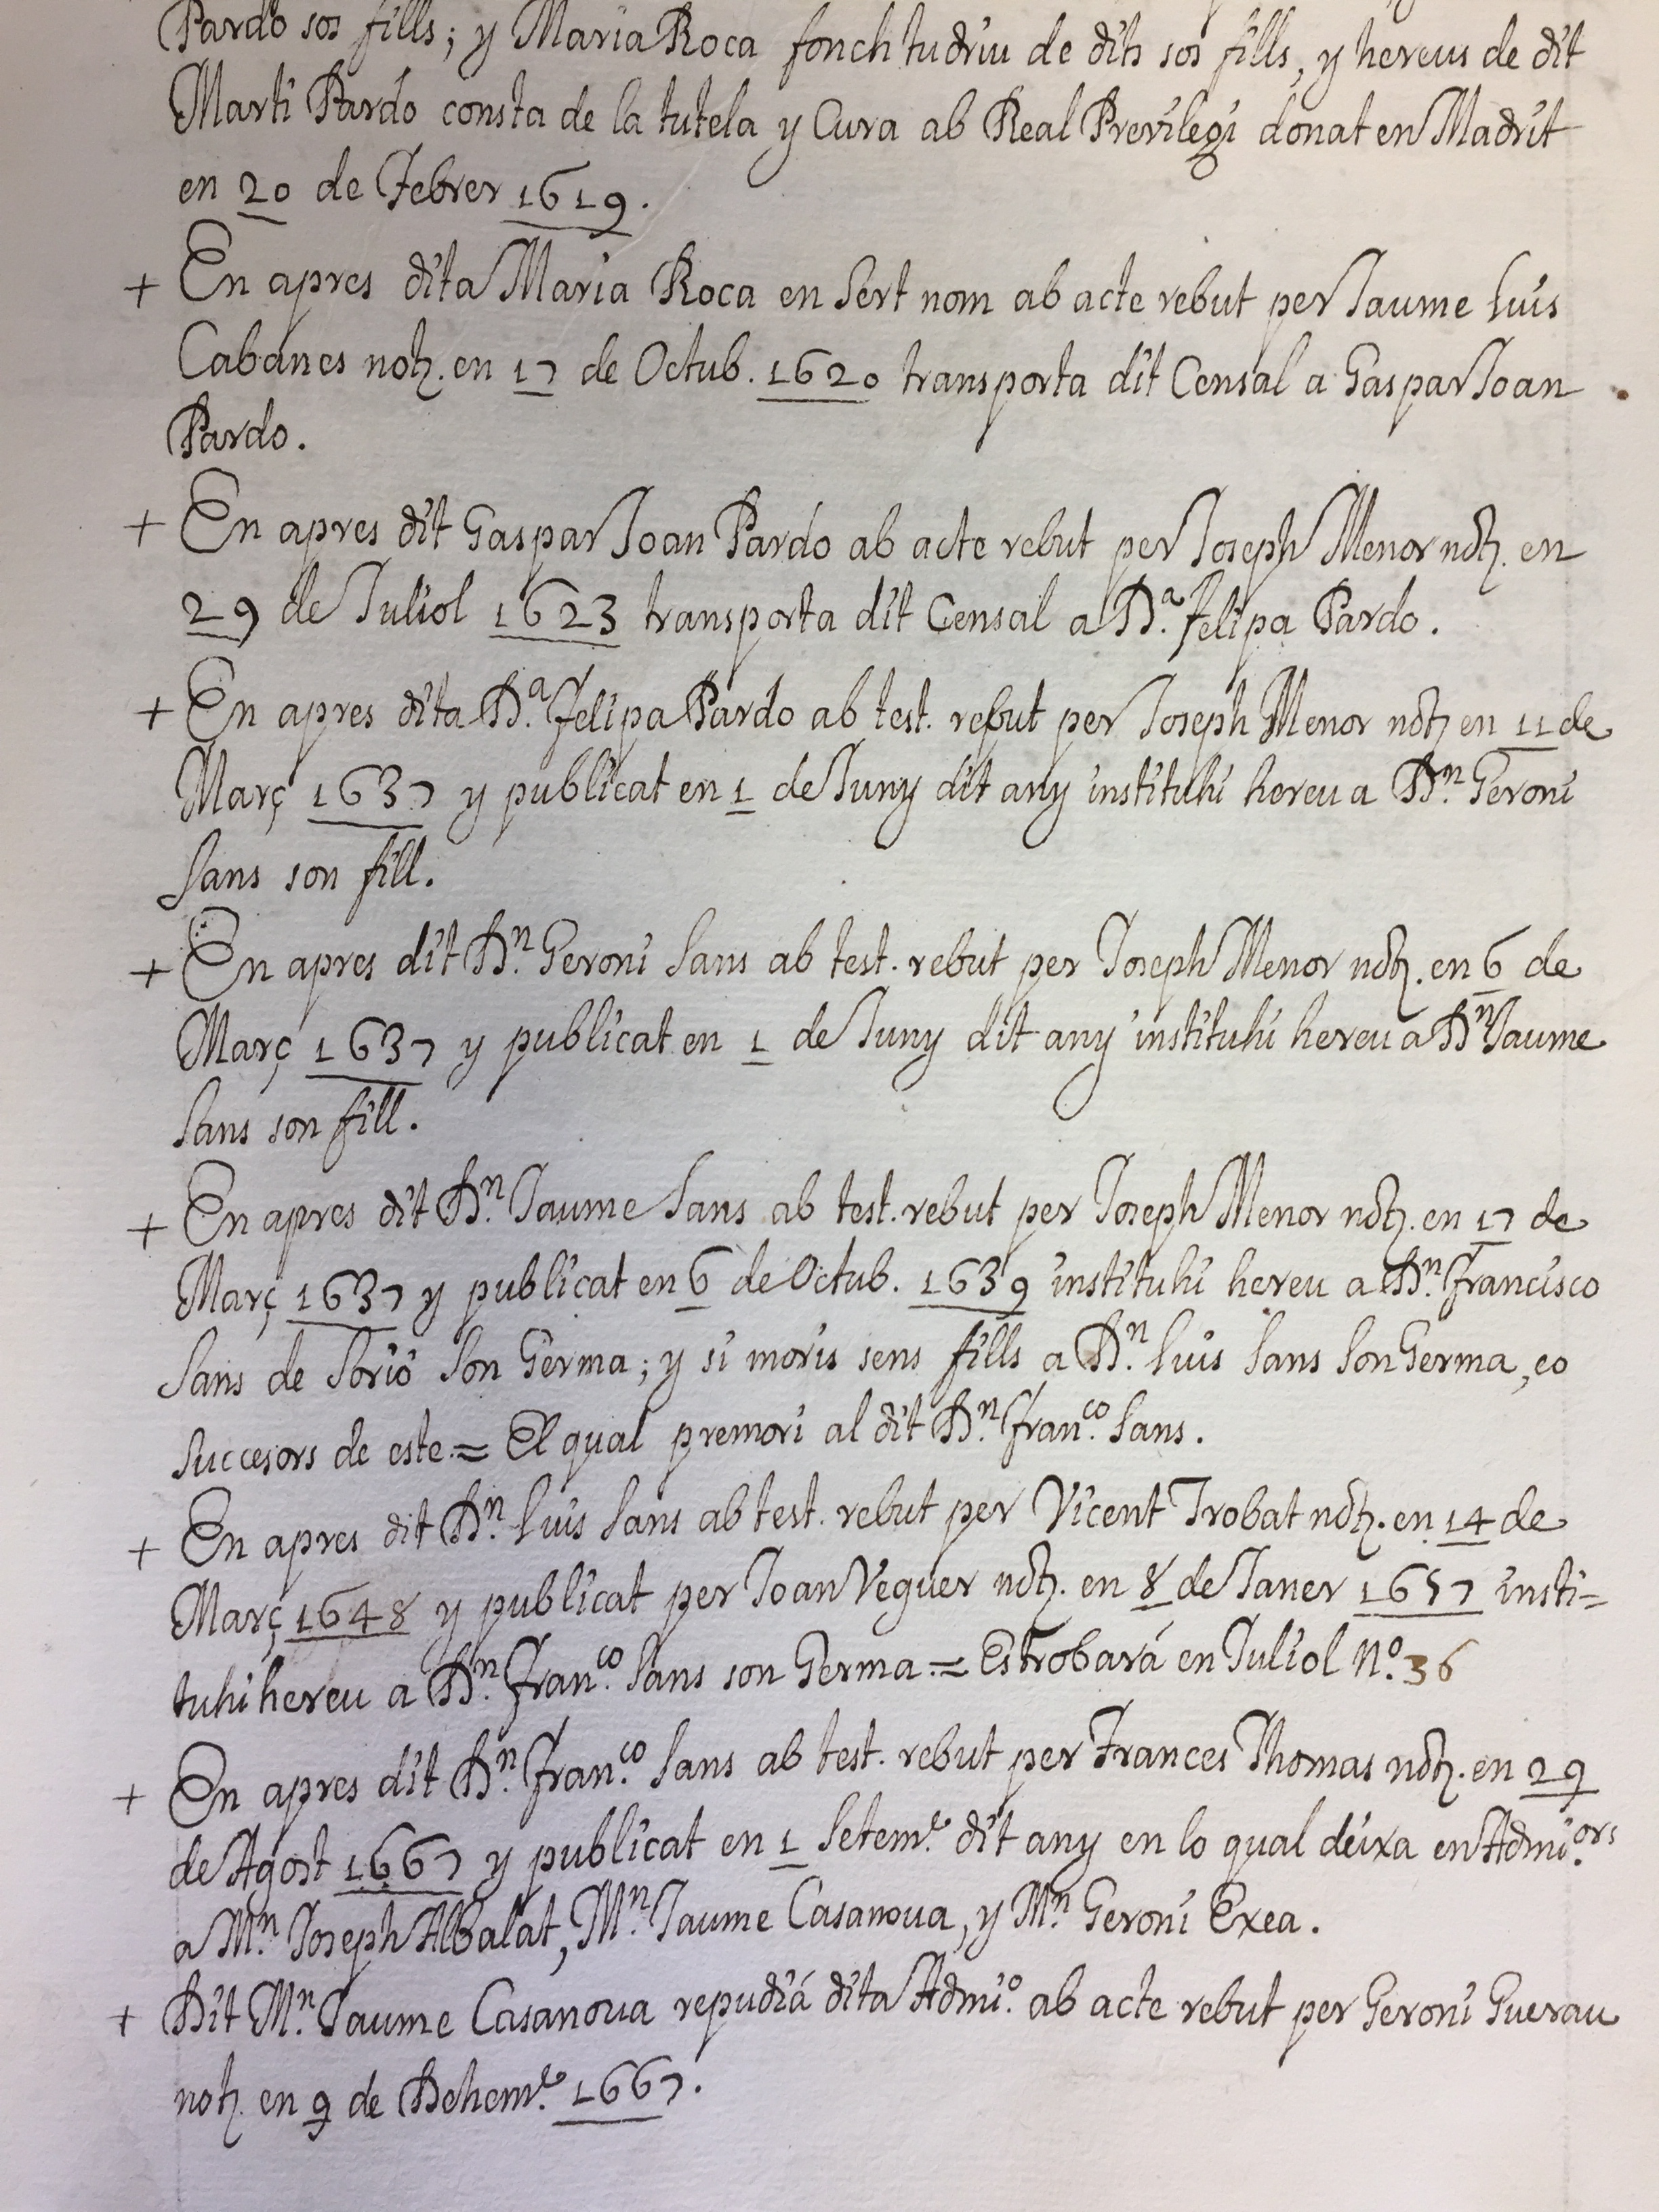 Pardo sos fills; y Maria Roca fonch tudriu de dits sos fills, y hereus de dit
Marti Pardo consta de la tutela y Cura ab Real Previlegi donat en Madrit
en 20 de Febrer 1619.
+ En apres dita Maria Roca en sert nom ab acte rebut per Jaume Luis
Cabanes notz. en 17 de Octub. 1620 transporta dit Censal a Gaspar Joan
Pardo.
+ En apres dit Gaspar Joan Pardo ab acte rebut per Joseph Menor notz. en
29 de Juliol 1623 transporta dit Censal a D.ª Felipa Pardo.
+ En apres dita D.ª Felipa Pardo ab test. rebut per Joseph Menor notz en 11 de
Març 1637 y publicat en 1 de Juny dit any instituhi hereu a D.n Geroni
Sans son fill.
+ En apres dit D.n Geroni Sans ab test. rebut per Joseph Menor notz. en 6 de
Març 1637 y publicat en 1 de Juny dit any instituhi hereu a D.n Jaume
Sans son fill.
+ En apres dit D.n Jaume Sans ab test. rebut per Joseph Menor notz. en 17 de
Març 1637 y publicat en 6 de Octub. 1639 instituhi hereu a D.n Francisco
Sans de Sorio Son Germa; y si moris sens fills a D.n Luis Sans Son Germa, eo
succesors de este.= El qual premori al dit D.n Fran.co Sans.
+ En apres dit D.n Luis Sans ab test. rebut per Vicent Trobat notz. en 14 de
Març 1648 y publicat per Joan Veguer notz. en 8 de Janer 1657 insti=
tuhi hereu a D.n Fran.co Sans son Germa.= Es trobará en Juliol N.º 36
+ En apres dit D.n Fran.co Sans ab test. rebut per Frances Thomas notz. en 29
de Agost 1667 y publicat en 1 Setem.e dit any en lo qual deixa en Admi.ors
a M.n Joseph Albalat, M.n Jaume Casanova, y M.n Geroni Exea.
+ Dit M.n Jaume Casanova repudiá dita Admi.º ab acte rebut per Geroni Guerau
notz. en 9 de Dehem.e 1667.